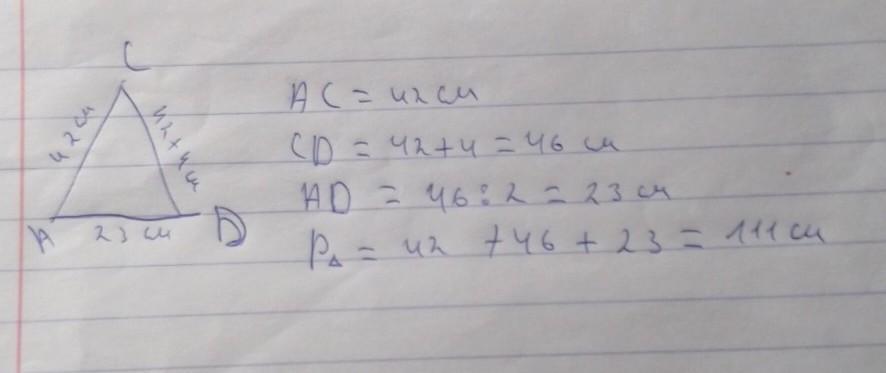 C
42 см
42+4 см
A 23 см D
AC = 42 см
CD = 42+4 = 46 см
AD = 46:2 = 23 см
P△ = 42 + 46 + 23 = 111 см